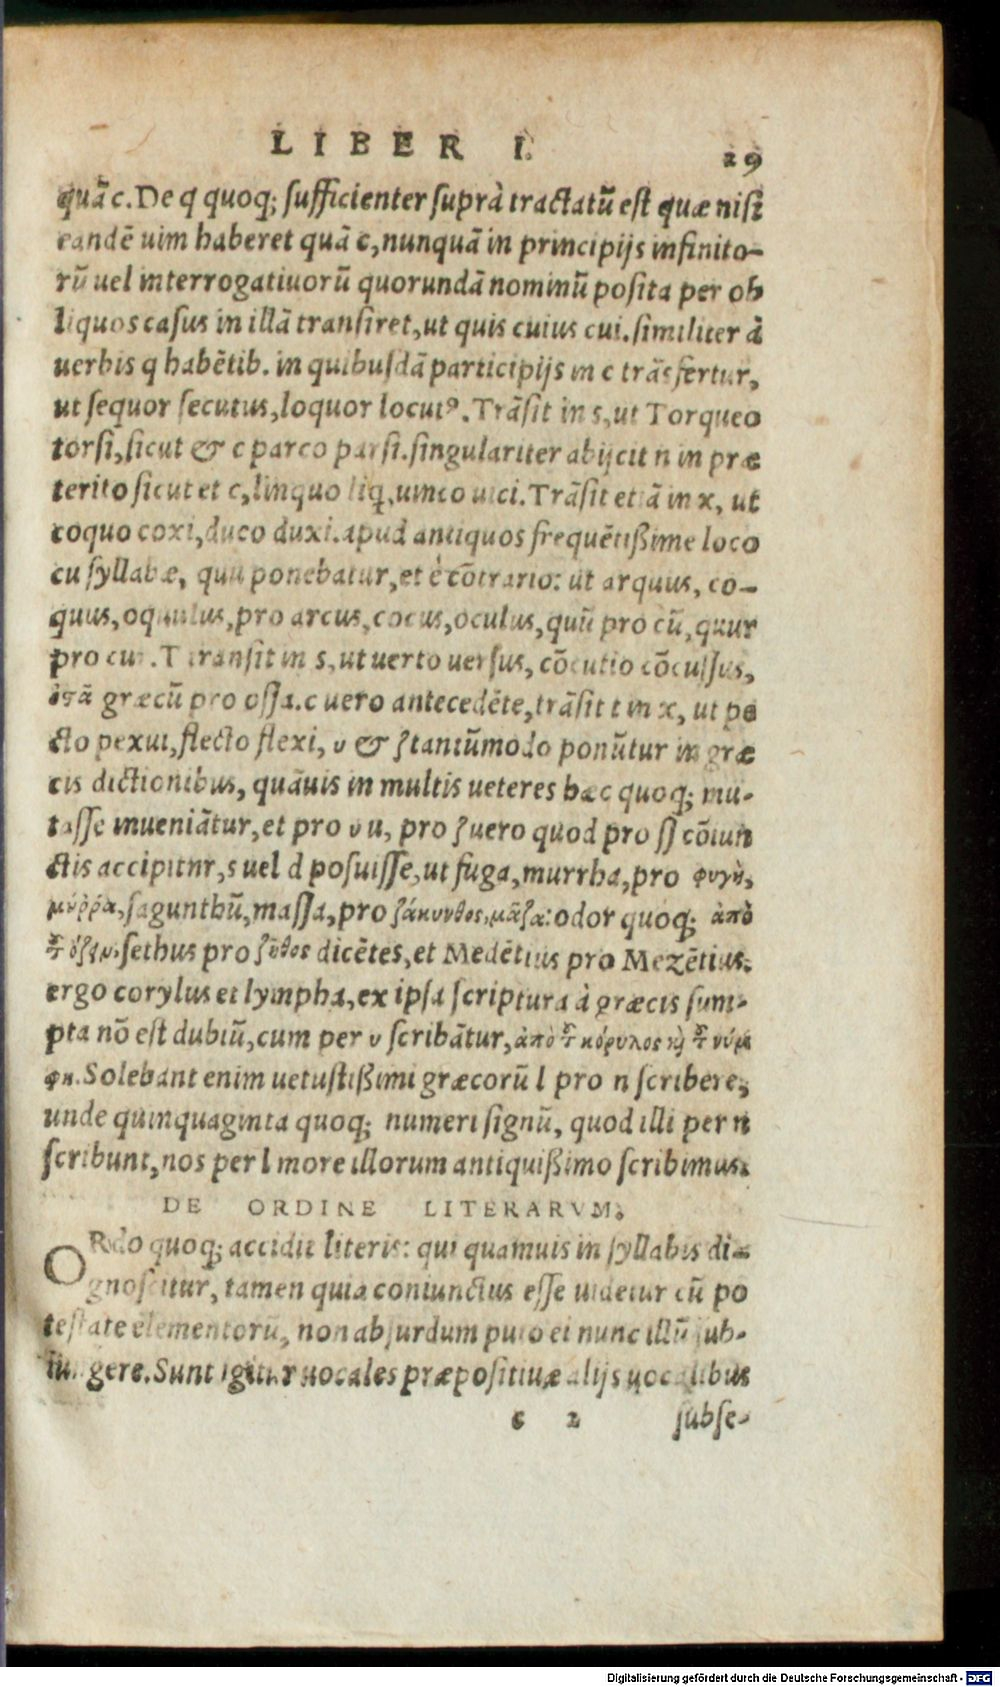 LIBER I. 29
quã c. De q quoq; sufficienter suprà tractatũ est quæ nisi
eandẽ uim haberet quã c, nunquã in principijs infinito-
rũ uel interrogatiuorũ quorundã nominũ posita per ob
liquos casus in illã transiret, ut quis cuius cui. similiter à
uerbis q habẽtib. in quibusdã participijs in c trãsfertur,
ut sequor secutus, loquor locutꝰ. Trãsit in s, ut Torqueo
torsi, sicut & c parco parsi. singulariter abijcit n in præ
terito sicut et c, linquo liq, uinco uici. Trãsit etiã in x, ut
coquo coxi, duco duxi. apud antiquos frequẽtißime loco
cu syllabæ, quu ponebatur, et è cõtrario: ut arquus, co-
quus, oquulus, pro arcus, cocus, oculus, quũ pro cũ, quur
pro cur. T transit in s, ut uerto uersus, cõcutio cõcussus,
græcũ pro ossa. c uero antecedẽte, trãsit t in x, ut pe
cto pexui, flecto flexi, υ & ζ tantũmodo ponũtur in græ
cis dictionibus, quãuis in multis ueteres hæc quoq; mu-
tasse inueniãtur, et pro υ u, pro ζ uero quod pro ss cõiun
ctis accipitnr, s uel d posuisse, ut fuga, murrha, pro φυγὴ,
μύῤῥα, sagunthũ, massa, pro ζάκυνθος, μᾶζα: odor quoq; ἀπὸ
τ͂ ὄζειν. sethus pro ζῦθος dicẽtes, et Medẽtius pro Mezẽtius.
ergo corylus et lympha, ex ipsa scriptura à græcis sum-
pta nõ est dubiũ, cum per υ scribãtur, ἀπὸ τ͂ κόρυλος κὶ τ͂ νύμ
φη. Solebant enim uetustißimi græcorũ l pro n scribere,
unde quinquaginta quoq; numeri signũ, quod illi per n
scribunt, nos per l more illorum antiquißimo scribimus.
DE ORDINE LITERARVM.
ORdo quoq; accidit literis: qui quamuis in syllabis di-
gnoscitur, tamen quia coniunctus esse uidetur cũ po
testate elementorũ, non absurdum puto ei nunc illũ sub-
iungere. Sunt igitur uocales præpositiuæ alijs uocalibus
c 2 subse-
Digitalisierung gefördert durch die Deutsche Forschungsgemeinschaft - DFG